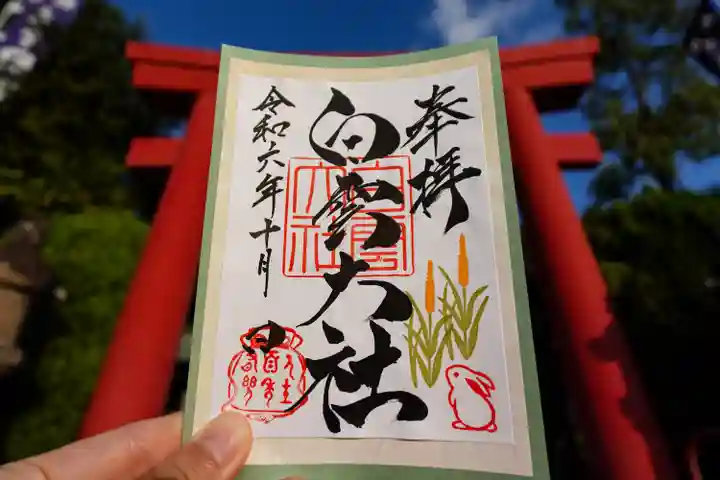 奉拝
白雲大社
令和六年十月
日